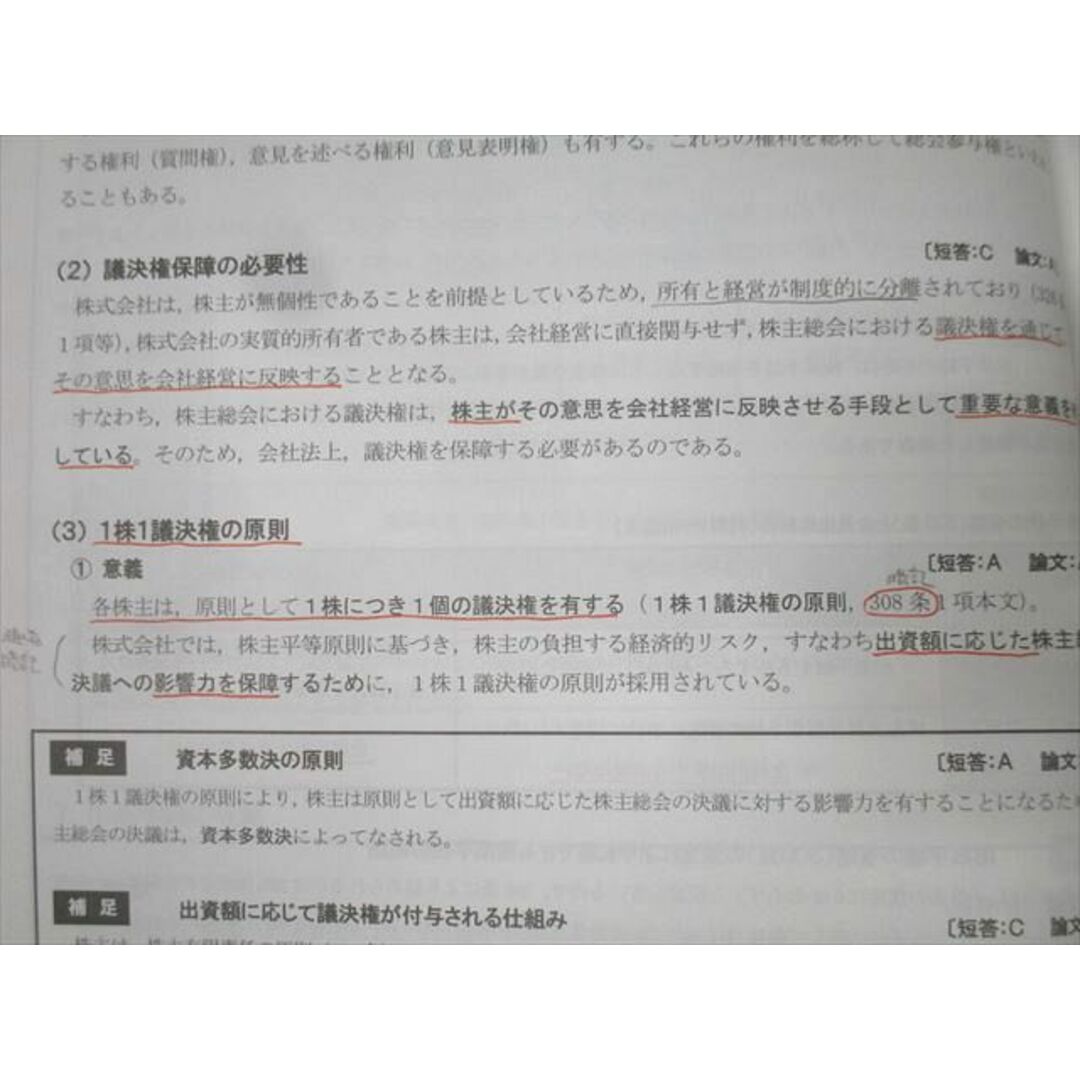 する権利(質問権),意見を述べる権利(意見表明権)も有する。これらの権利を総称して総会参与権といわ
ることもある。
(2) 議決権保障の必要性
〔短答:C 論文:
株式会社は,株主が無個性であることを前提としているため,所有と経営が制度的に分離されており(
1項等),株式会社の実質的所有者である株主は,会社経営に直接関与せず,株主総会における議決権を通じて
その意思を会社経営に反映することとなる。
すなわち,株主総会における議決権は,株主がその意思を会社経営に反映させる手段として重要な意義を
している。そのため,会社法上,議決権を保障する必要があるのである。
(3) 1株1議決権の原則
① 意義
〔短答:A 論文:
暗記
各株主は,原則として1株につき1個の議決権を有する(1株1議決権の原則,308条1項本文)。
株式会社では,株主平等原則に基づき,株主の負担する経済的リスク,すなわち出資額に応じた株主
決議への影響力を保障するために,1株1議決権の原則が採用されている。
補足 資本多数決の原則
〔短答:A 論文
1株1議決権の原則により,株主は原則として出資額に応じた株主総会の決議に対する影響力を有することになるた
主総会の決議は,資本多数決によってなされる。
補足 出資額に応じて議決権が付与される仕組み
〔短答:C 論文